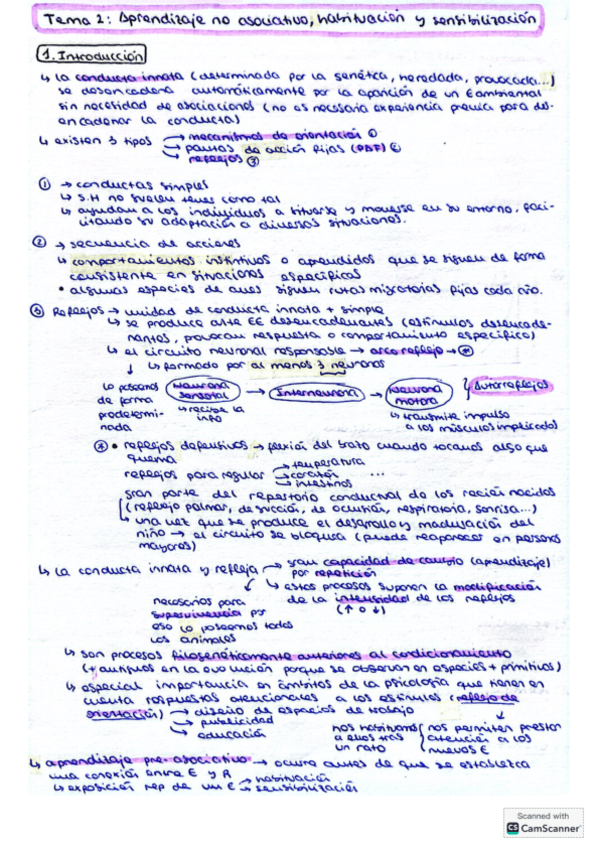 Tema 2: Aprendizaje no asociativo, habituación y sensibilización
1. Introducción
↳ La conducta innata (determinada por la genética, heredada, provocada...)
se desencadena automáticamente por la aparición de un E ambiental
sin necesidad de asociaciones (no es necesaria experiencia previa para des-
encadenar la conducta)
↳ existen 3 tipos → mecanismos de orientación ①
→ pautas de acción fijas (PAF) ②
→ reflejos ③
① → conductas simples
↳ S.H no suelen tener como tal
↳ ayudan a los individuos a situarse y moverse en su entorno, faci-
litando su adaptación a diversas situaciones.
② → secuencia de acciones
↳ comportamientos instintivos o aprendidos que se siguen de forma
consistente en situaciones específicas
• algunas especies de aves siguen rutas migratorias fijas cada año.
③ Reflejos → unidad de conducta innata + simple
↳ se produce ante EE desencadenantes (estímulos desencade-
nantes, provocan respuesta o comportamiento específico)
↳ el circuito neuronal responsable → arco reflejo → *
↳ formado por al menos 3 neuronas
lo poseemos
de forma
predetermi-
nada
Neurona sensorial → Interneurona → Neurona motora { Autorreflejos
↳ recibe la
info
↳ transmite impulso
a los músculos implicados
* • reflejos defensivos → flexión del brazo cuando tocamos algo que
quema
reflejos para regular → temperatura
→ corazón ...
→ intestinos
gran parte del repertorio conductual de los recién nacidos
(reflejo palmar, de succión, de ocución, respiratoria, sonrisa...)
↳ una vez que se produce el desarrollo y maduración del
niño → el circuito se bloquea (puede reaparecer en personas
mayores)
↳ La conducta innata y refleja → gran capacidad de cambio (aprendizaje)
por repetición
↳ estos procesos suponen la modificación
de la intensidad de los reflejos
(↑ o ↓)
necesarios para
supervivencia por
eso lo poseemos todos
los animales
↳ son procesos filogenéticamente anteriores al condicionamiento
(+ antiguos en la evolución porque se observan en especies + primitivas)
↳ especial importancia en ámbitos de la psicología que tienen en
cuenta respuestas atencionales a los estímulos (reflejo de
orientación) → diseño de espacios de trabajo
→ publicidad
→ educación
nos habituamos
a ellos tras
un rato
nos permiten prestar
atención a los
nuevos E
↳ aprendizaje pre-asociativo → ocurre antes de que se establezca
una conexión entre E y R
↳ exposición rep de un E → habituación
→ sensibilización
Scanned with
CS CamScanner